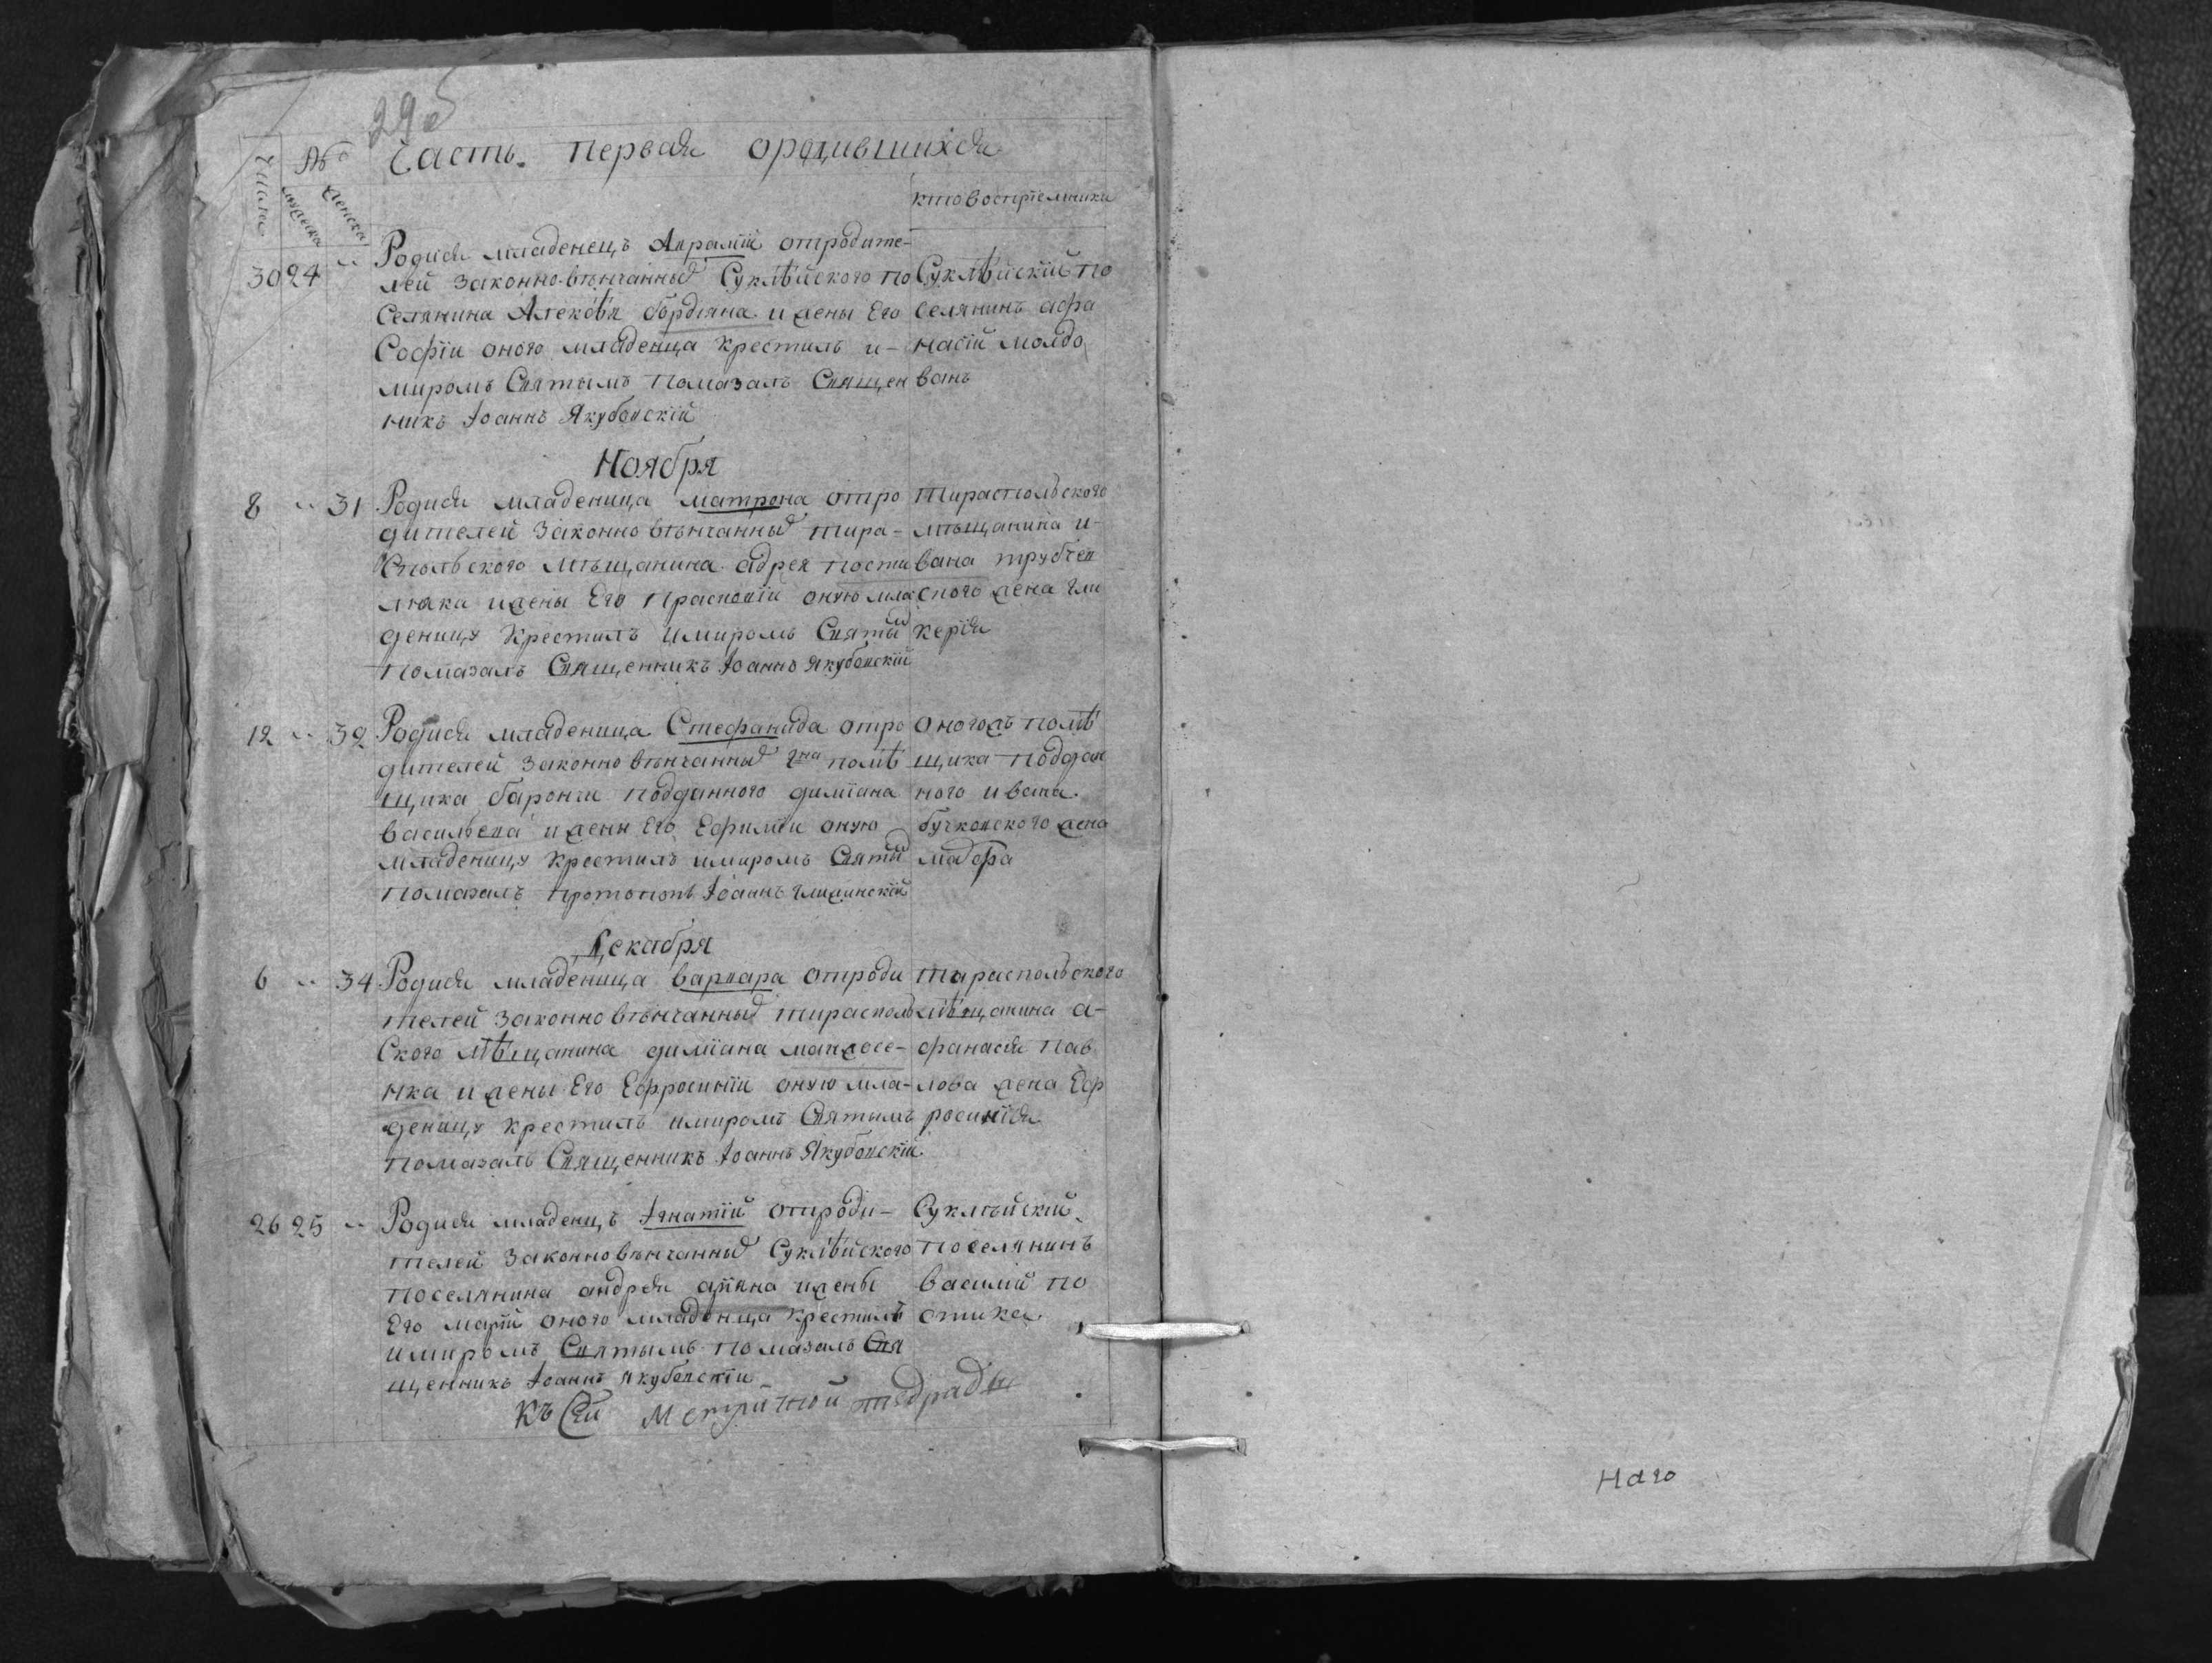 29об
Часть первая ородившихся
Числа
№
мужеска
женска
ктовоспріемники
30 24 „ Родися младенецъ Авраміи отродите-
лей законно вѣнчанныхъ Суклѣйского по
Селянина Алексѣя бордіяна и жены Его
Софіи оного младенца крестилъ и-
миромъ Святымъ Помазалъ Священ
никъ Іоаннъ Якубовскій
Суклѣйскій по
селянинъ афа
насій молдо
ванъ
Ноября
8 „ 31 Родися младеница матрона отро
дителей законно вѣнчанныхъ тира-
Спольского мѣщанина адрея
и жены Его Прасковіи оную мла
деницу Крестилъ имиромъ Святымъ
Помазалъ Священникъ Іоаннъ Якубовскій
Тираспольского
мѣщанина и-
вана трубчев
ского жена гли
керія
12 „ 32 Родися младеница Стефанида отро
дителей законно вѣнчанныхъ гна помѣ
щика баронги подданного диміана
васильева и жены Его Ефиміи оную
младеницу крестилъ имиромъ Святымъ
помазалъ протопопъ Іоаннъ глижинскій
оногожъ помѣ
щика поддан
ного ивана
бучковского жена
мадора
Декабря
6 „ 34 Родися младеница варвара отроди
телей законно вѣнчанныхъ тирасполь
Ского мѣщанина диміана манжосе-
нка и жены Его Ефросиніи оную мла-
деницу крестилъ имиромъ Святымъ
помазалъ Священникъ Іоаннъ Якубовскій
тираспольского
мѣщанина а-
фанасія пав
лова жена Еф
росинія
26 25 „ Родися младенецъ Игнатій отроди-
телей законно вѣнчанныхъ Суклѣйского
поселянина андрея и жены
Его маріи оного младенца крестилъ
имиромъ Святымъ помазалъ Свя
щенникъ Іоаннъ якубовскіи
Суклѣйскій
поселянинъ
василій по
стика
Къ Сей метричной тедради
Наго